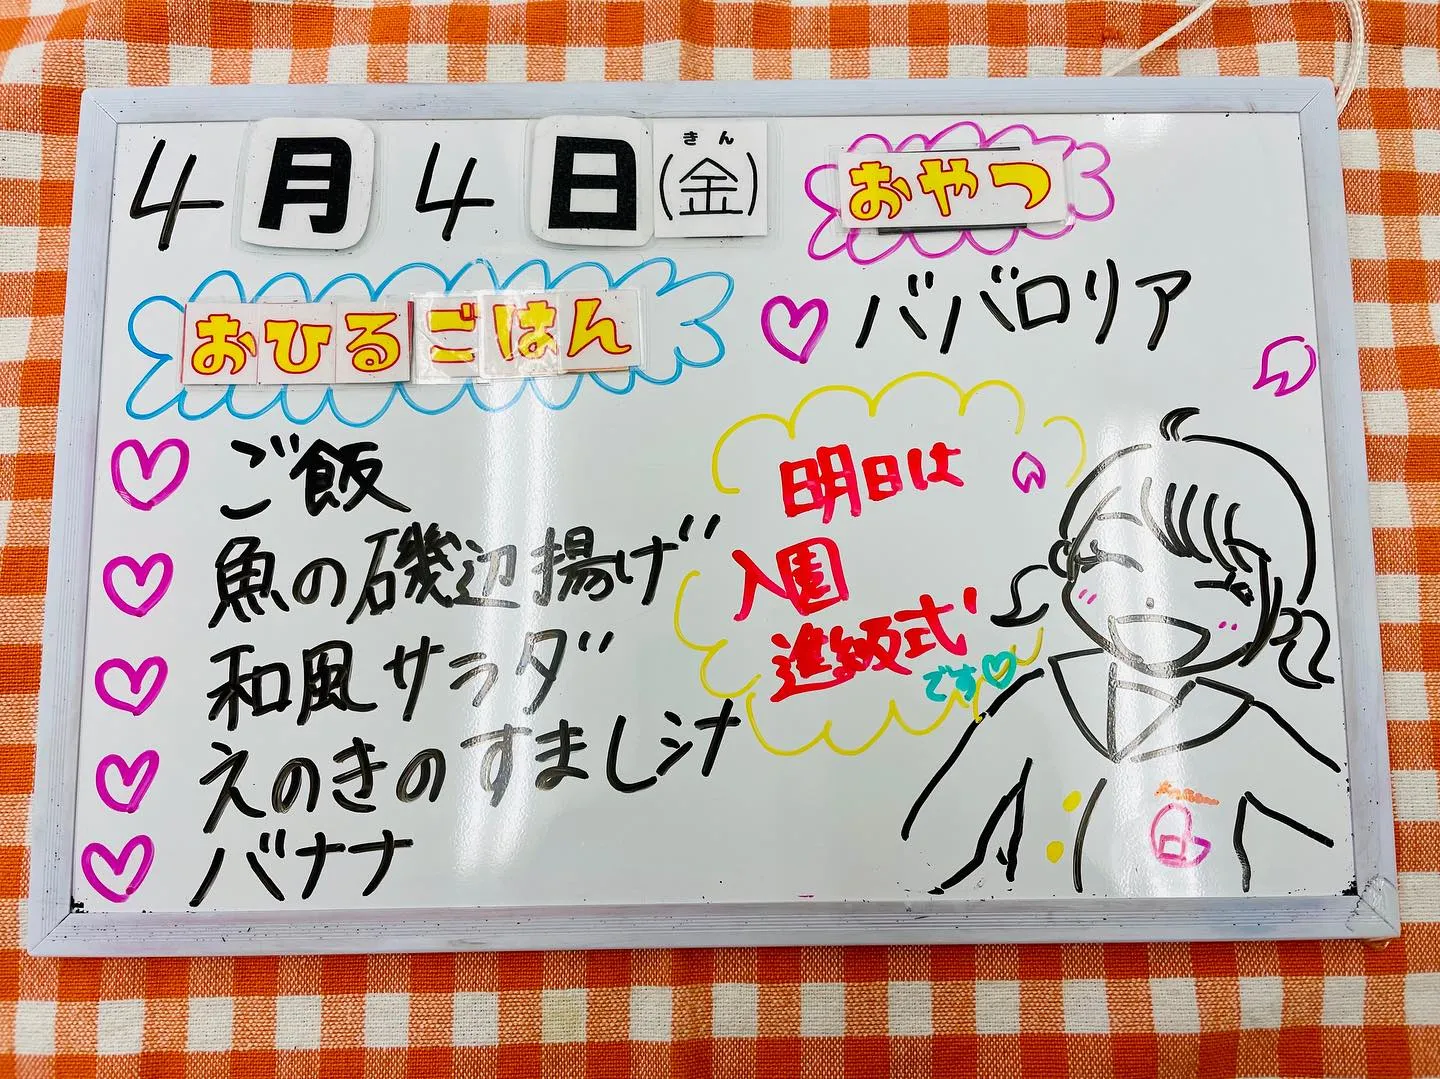 4月4日(金)
きん
おひるごはん
ご飯
魚の磯辺揚げ
和風サラダ
えのきのすまし汁
バナナ
おやつ
ババロリア
明日は
入園
進級式
です